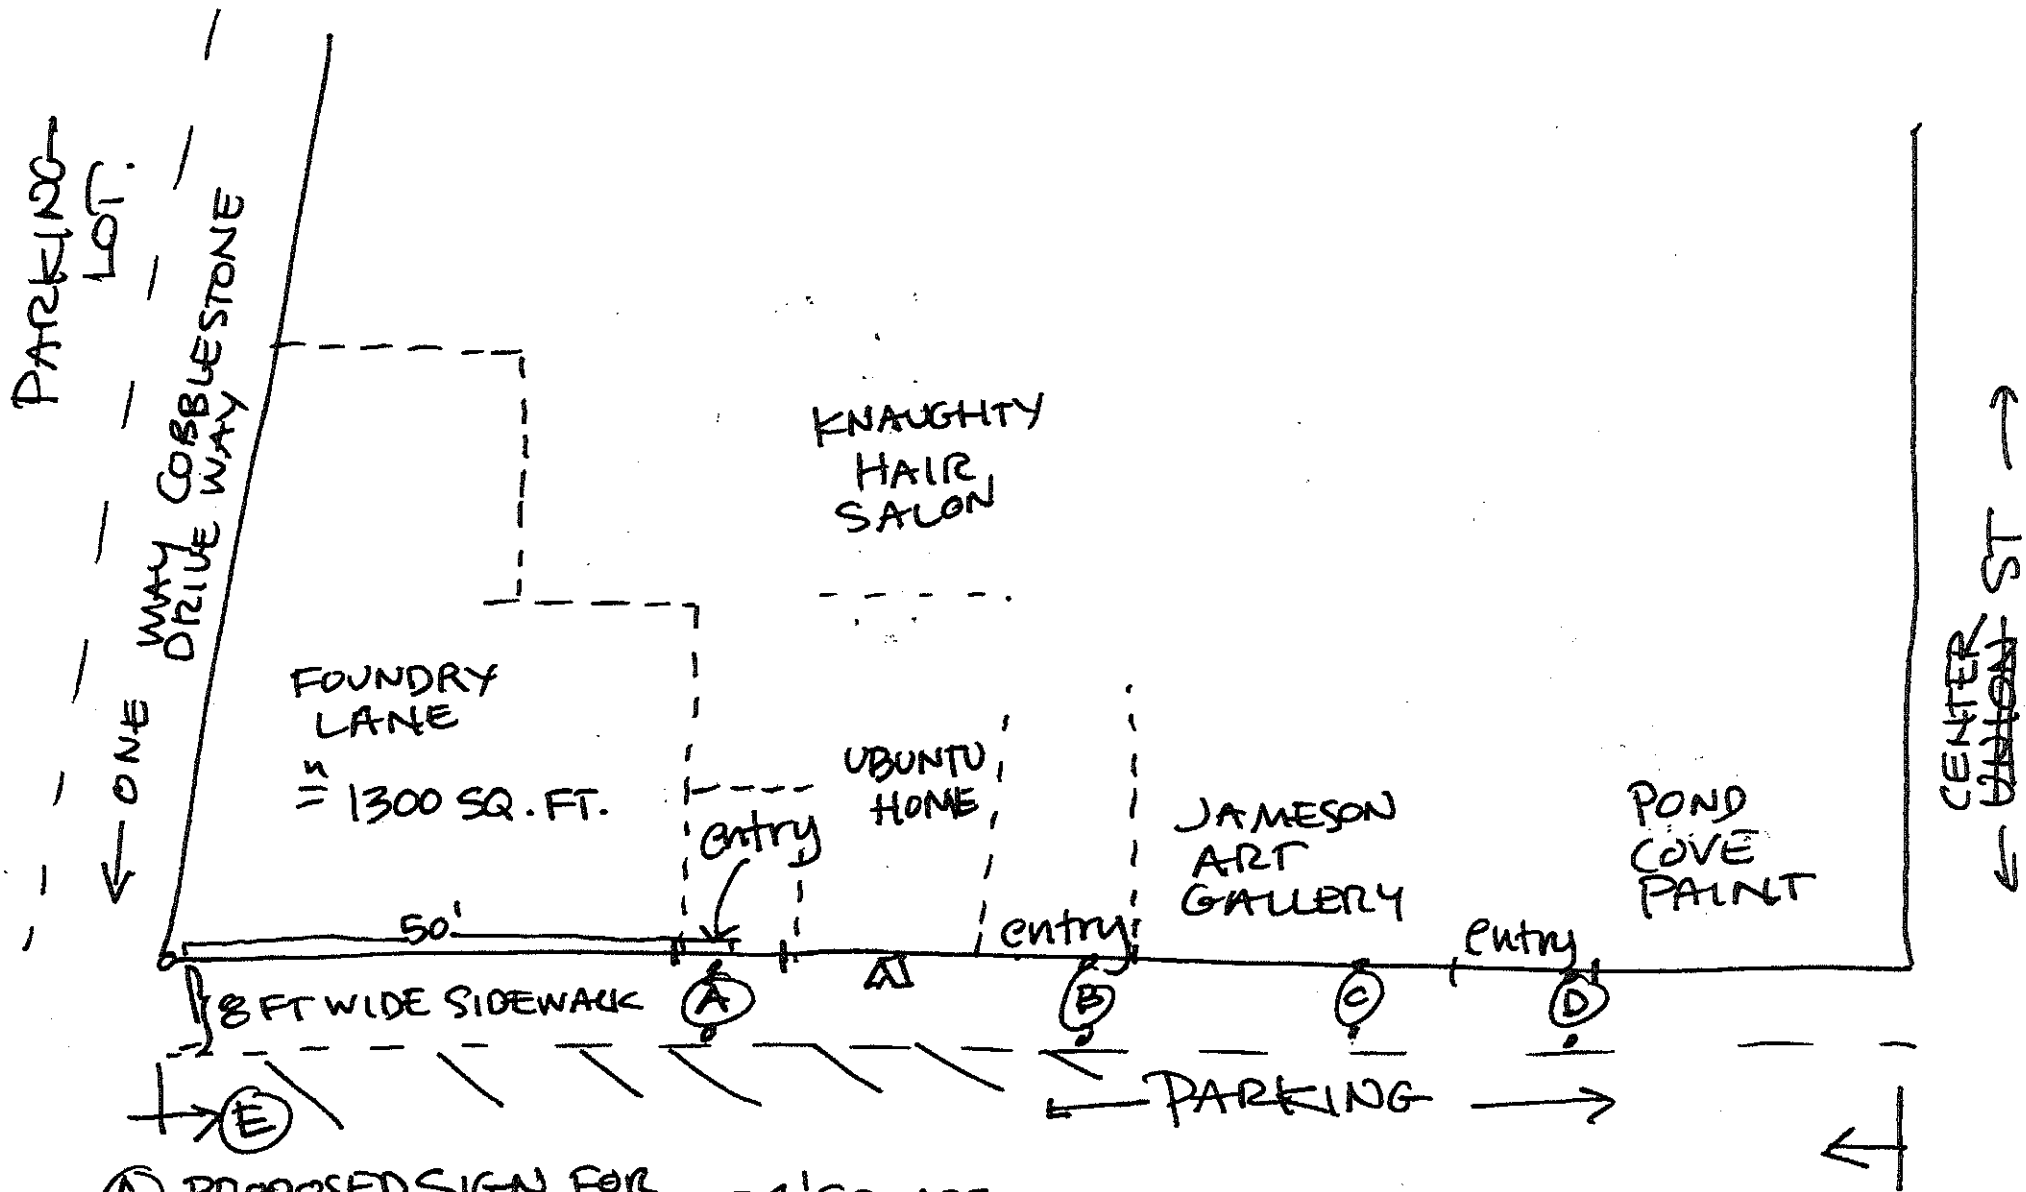 PARKING
LOT.
ONE WAY COBBLESTONE
DRIVE WAY
KNAUGHTY
HAIR
SALON
FOUNDRY
LANE
≈ 1300 SQ. FT.
entry
UBUNTU
HOME
JAMESON
ART
GALLERY
POND
COVE
PAINT
CENTER ST
50'
entry
entry
8 FT WIDE SIDEWALK
A
B
C
D
PARKING
E
A PROPOSED SIGN FOR